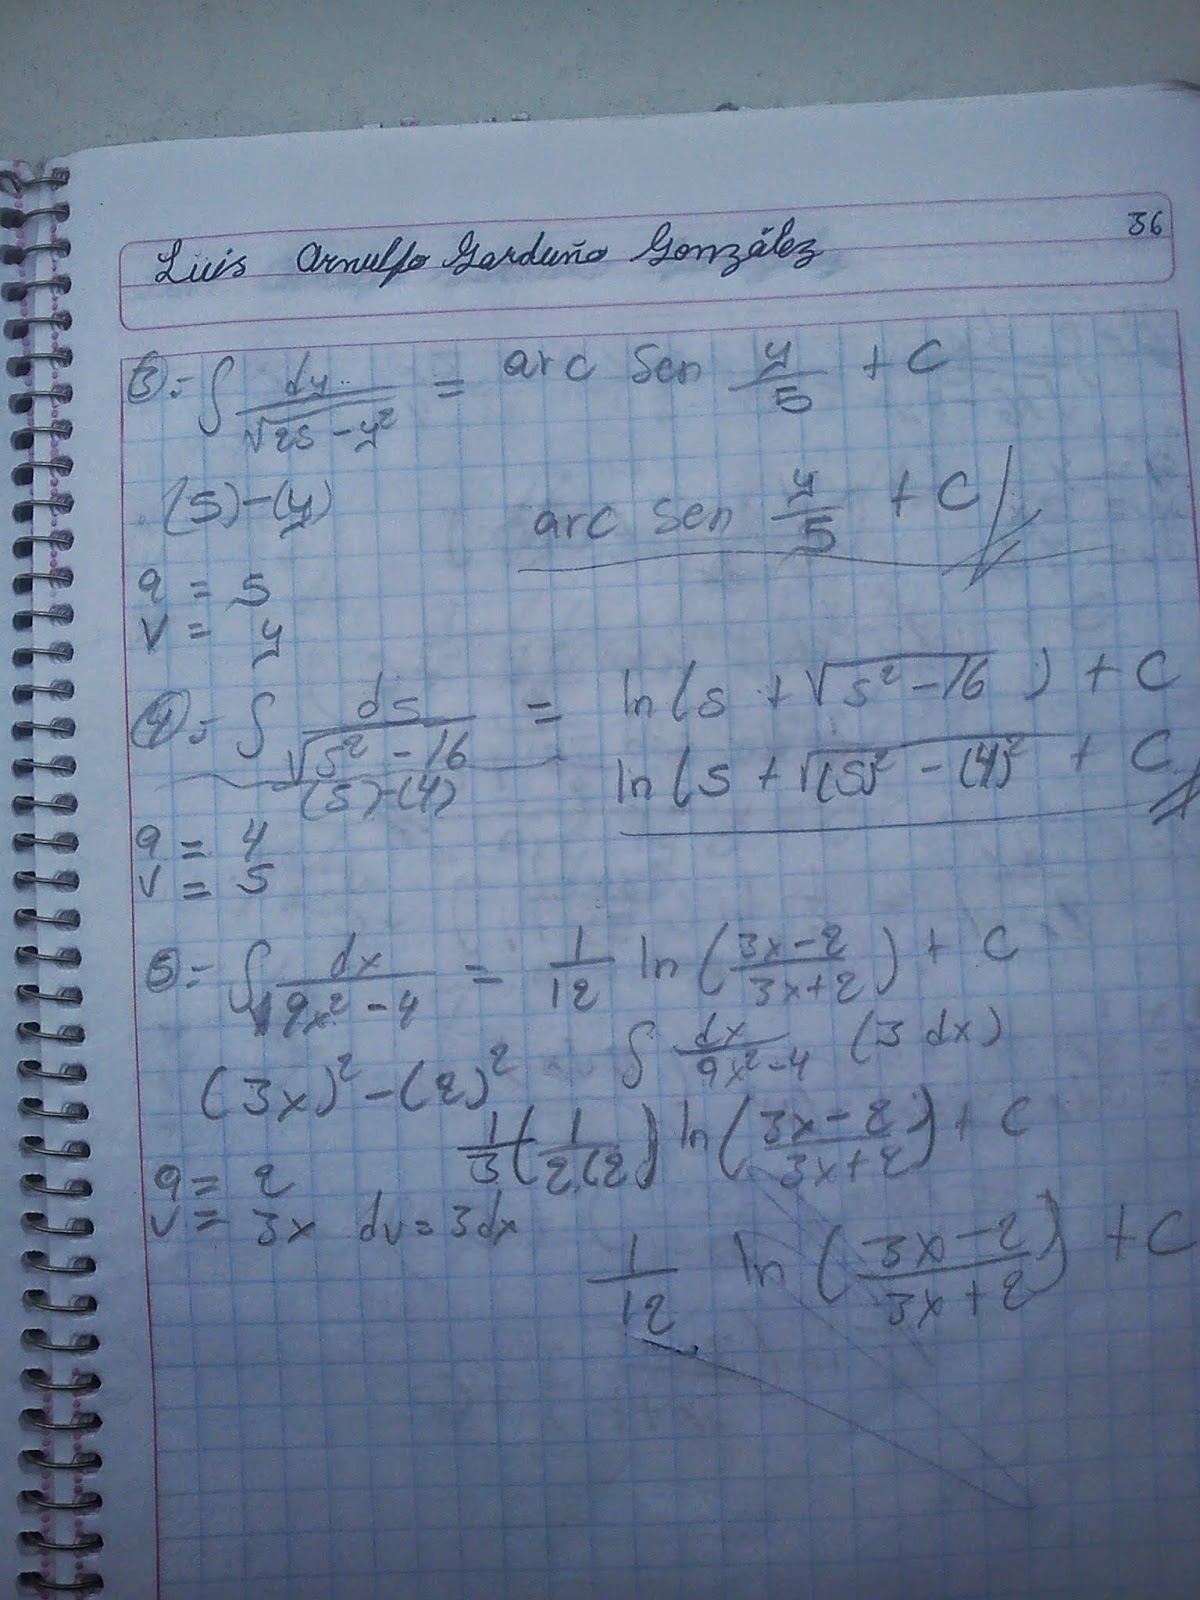 36
Luis Arnulfo Garduño González
3.= ∫ dy / √25 - y² = arc sen y/5 + C
(5)-(y)
arc sen y/5 + C
a = 5
v = y
4.= ∫ ds / √s² - 16 = ln(s + √s² - 16 ) + C
(s)-(4)
ln(s + √(s)² - (4)² + C
a = 4
v = s
5.= ∫ dx / 9x² - 4 = 1/12 ln(3x-2 / 3x+2) + C
∫ dx / 9x²-4 (3 dx)
(3x)² - (2)²
1/3 (1 / 2(2)) ln(3x-2 / 3x+2) + C
a = 2
v = 3x dv = 3dx
1/12 ln(3x-2 / 3x+2) + C